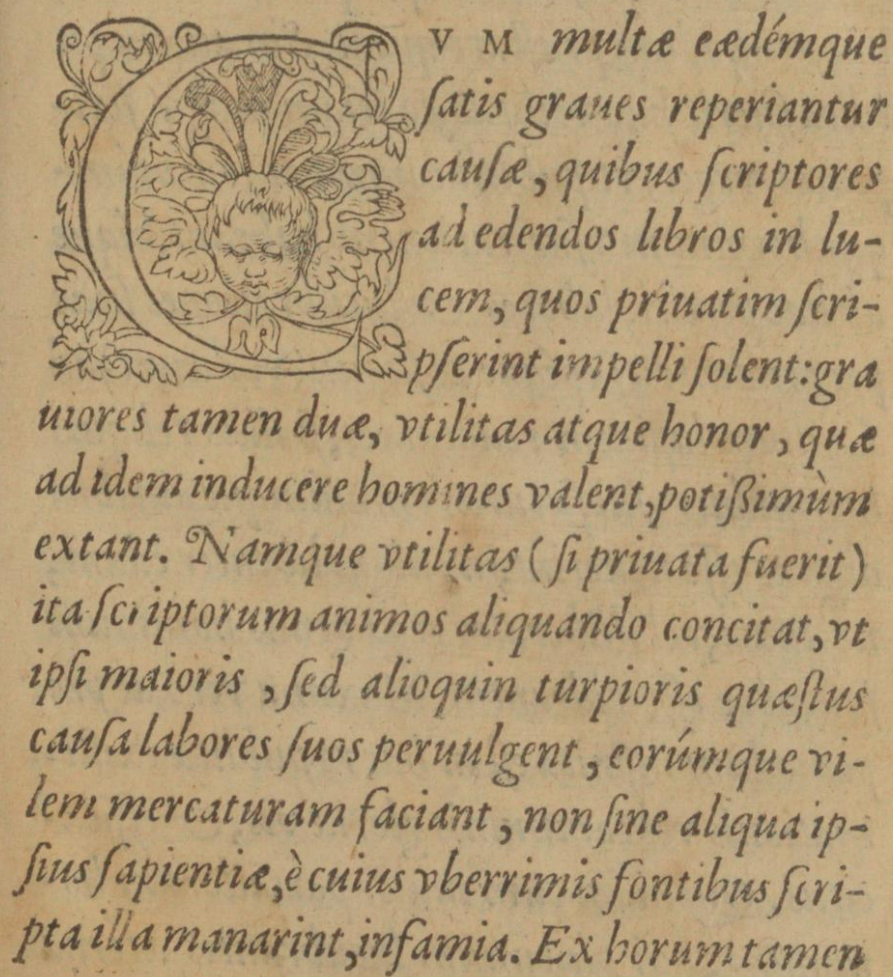 CVM multæ eædémque
ſatis graues reperiantur
cauſæ, quibus ſcriptores
ad edendos libros in lu-
cem, quos priuatim ſcri-
pſerint impelli ſolent: gra
uiores tamen duæ, vtilitas atque honor, quæ
ad idem inducere homines valent, potißimùm
extant. Namque vtilitas (ſi priuata fuerit)
ita ſcriptorum animos aliquando concitat, vt
ipſi maioris, ſed alioquin turpioris quæſtus
cauſa labores ſuos peruulgent, eorúmque vi-
lem mercaturam faciant, non ſine aliqua ip-
ſius ſapientiæ, è cuius vberrimis fontibus ſcri-
pta illa manarint, infamia. Ex horum tamen